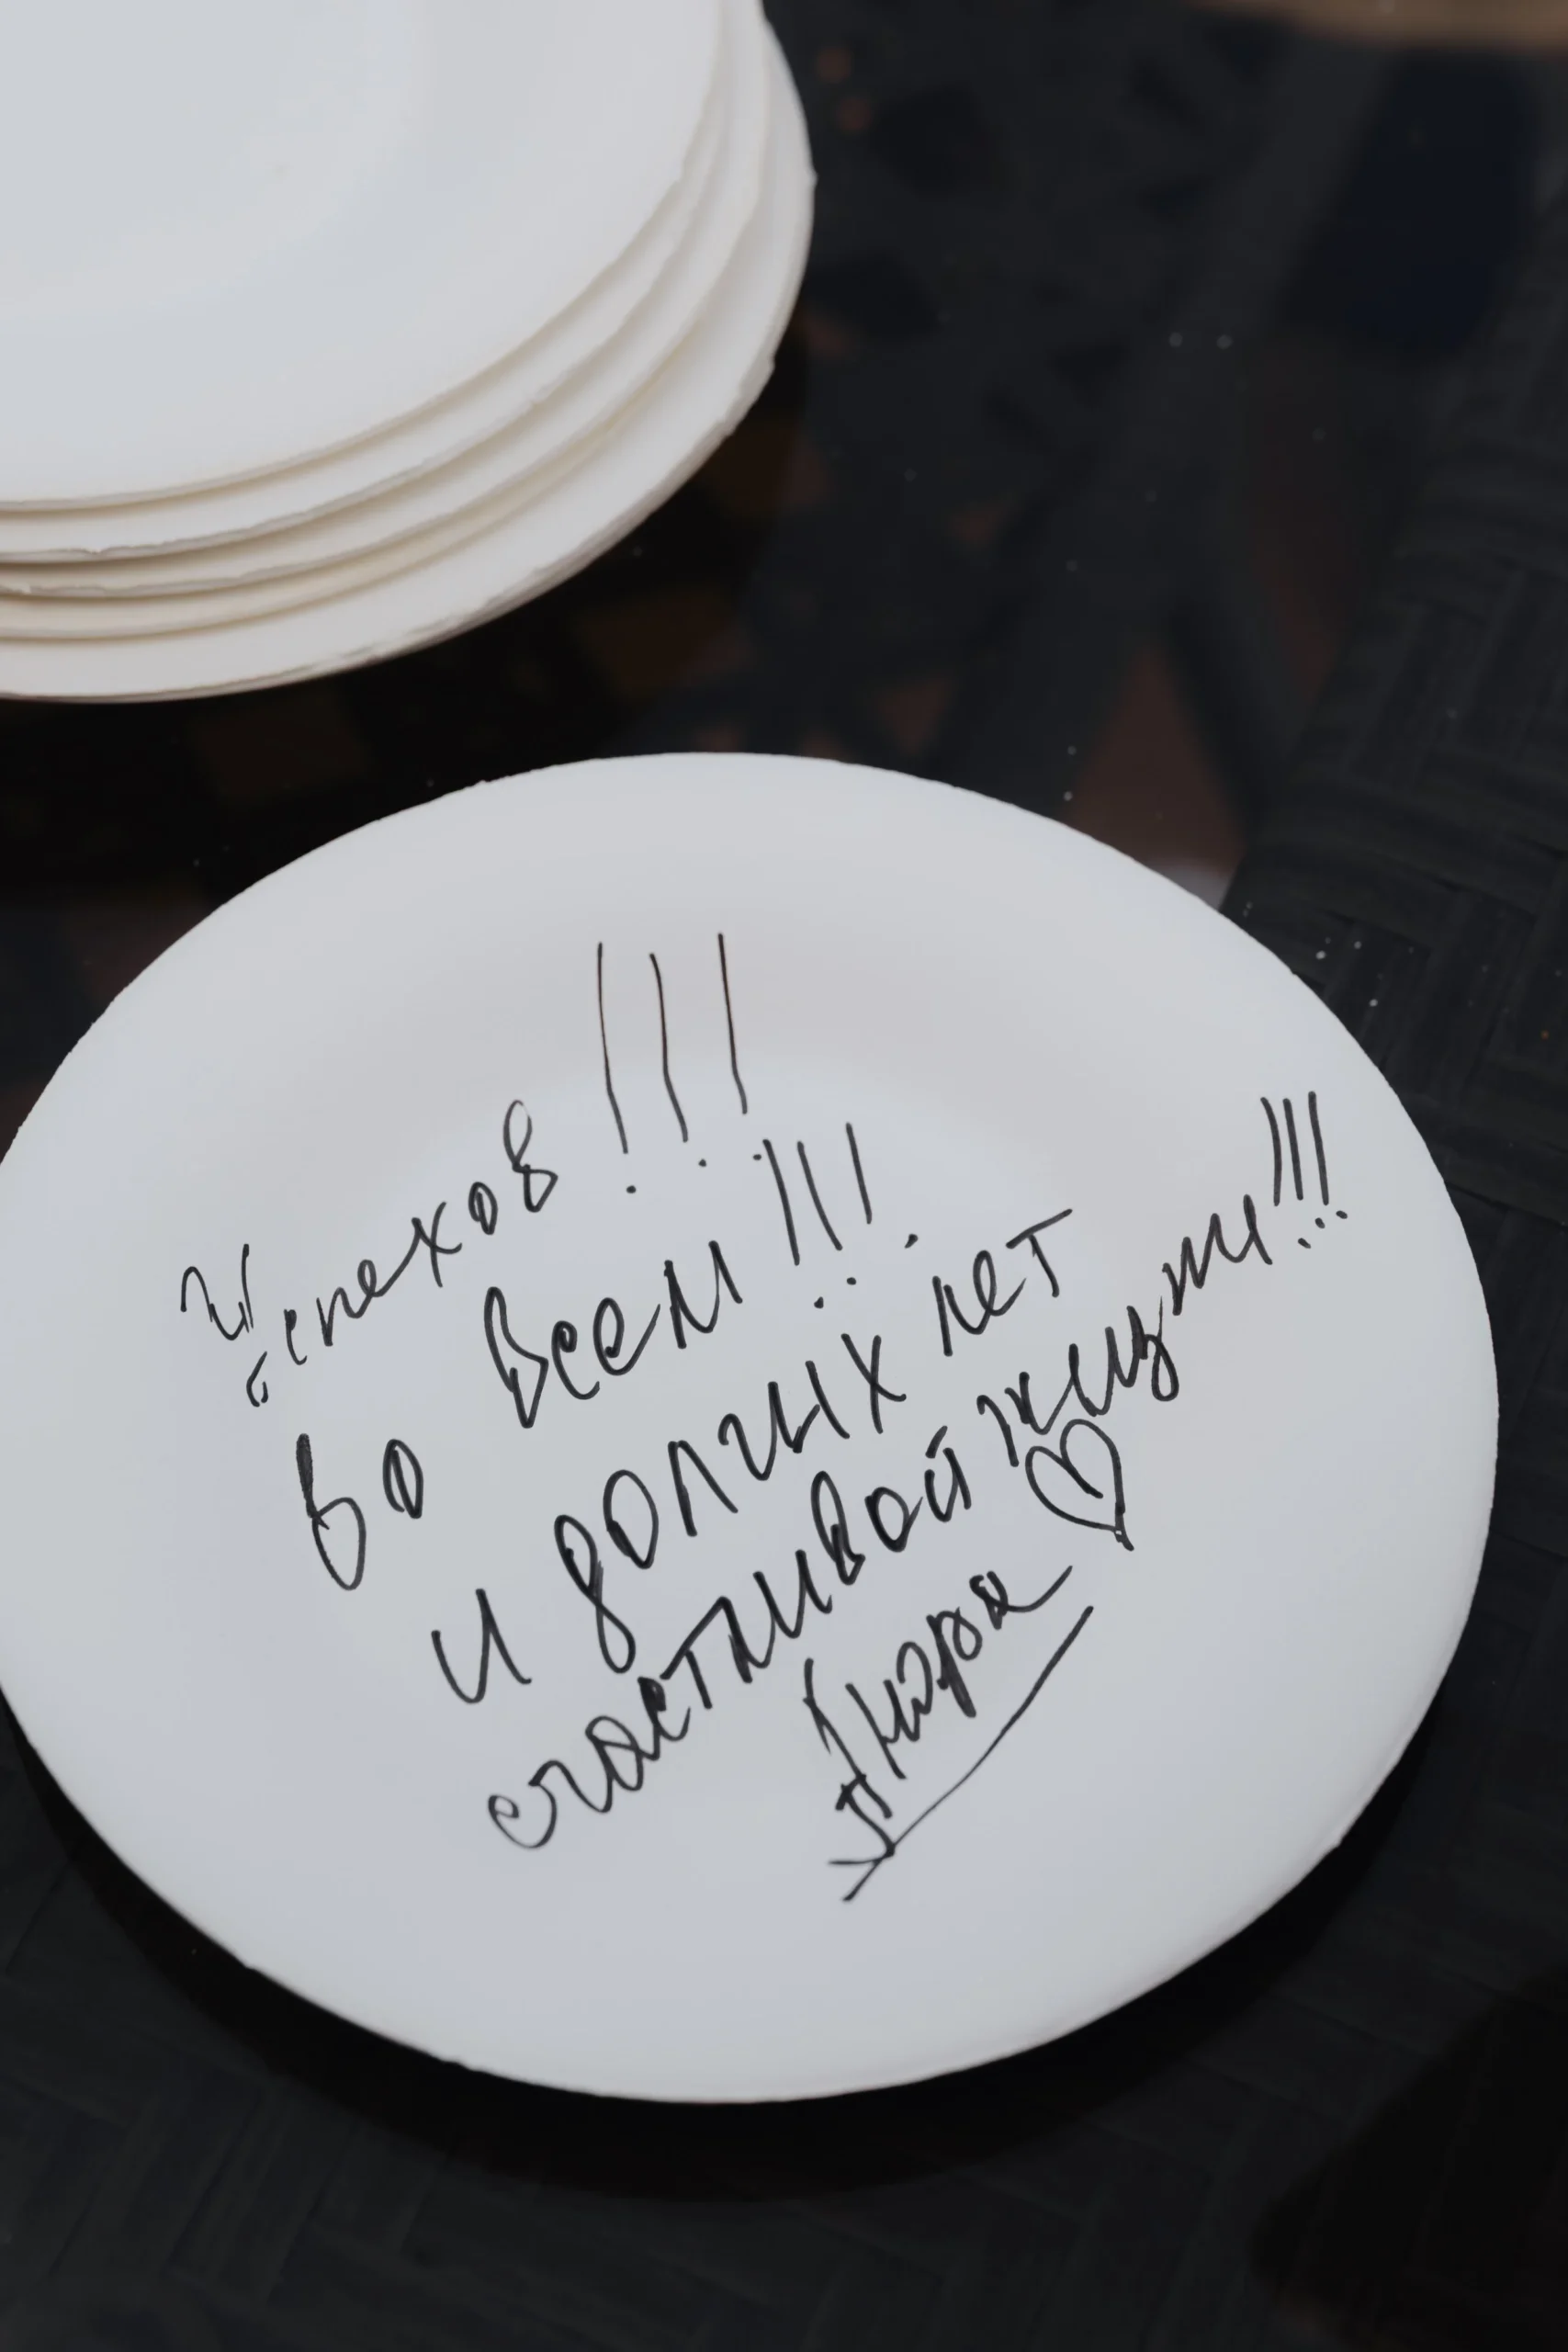 Успехов!!!
во всем!!!
и долгих лет
счастливой жизни!!!